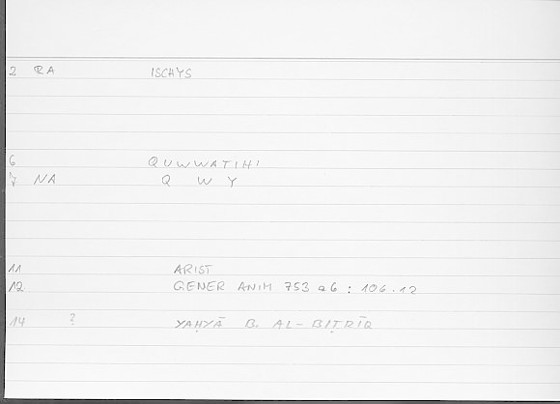 2 RA ISCHYS
6 QUWWATIHI
7 NA Q W Y
11 ARIST
12 GENER ANIM 753 a6 : 106.12
14 ? YAḤYĀ B. AL-BIṬRĪQ